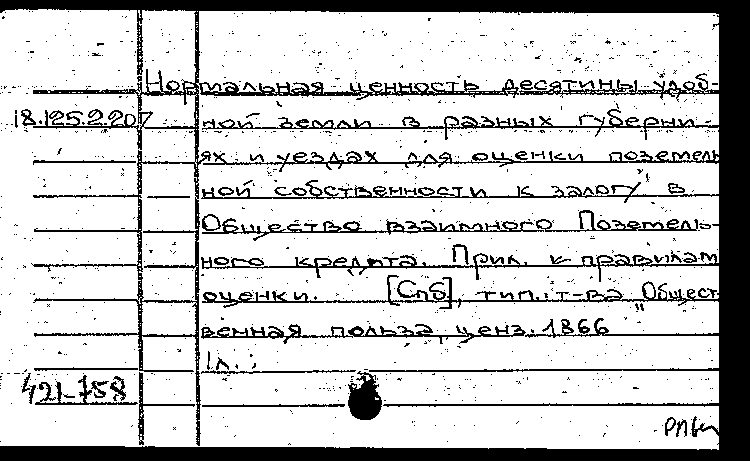 Нормальная ценность десятины удоб-
18.125.2.207 ной земли в разных губерни-
ях и уездах для оценки поземель
ной собственности к залогу в
Общество взаимного Поземель-
ного кредита. Прил. к правилам
оценки. [Спб], тип. т-ва „Общест
венная польза, ценз. 1866
1л.
421-758